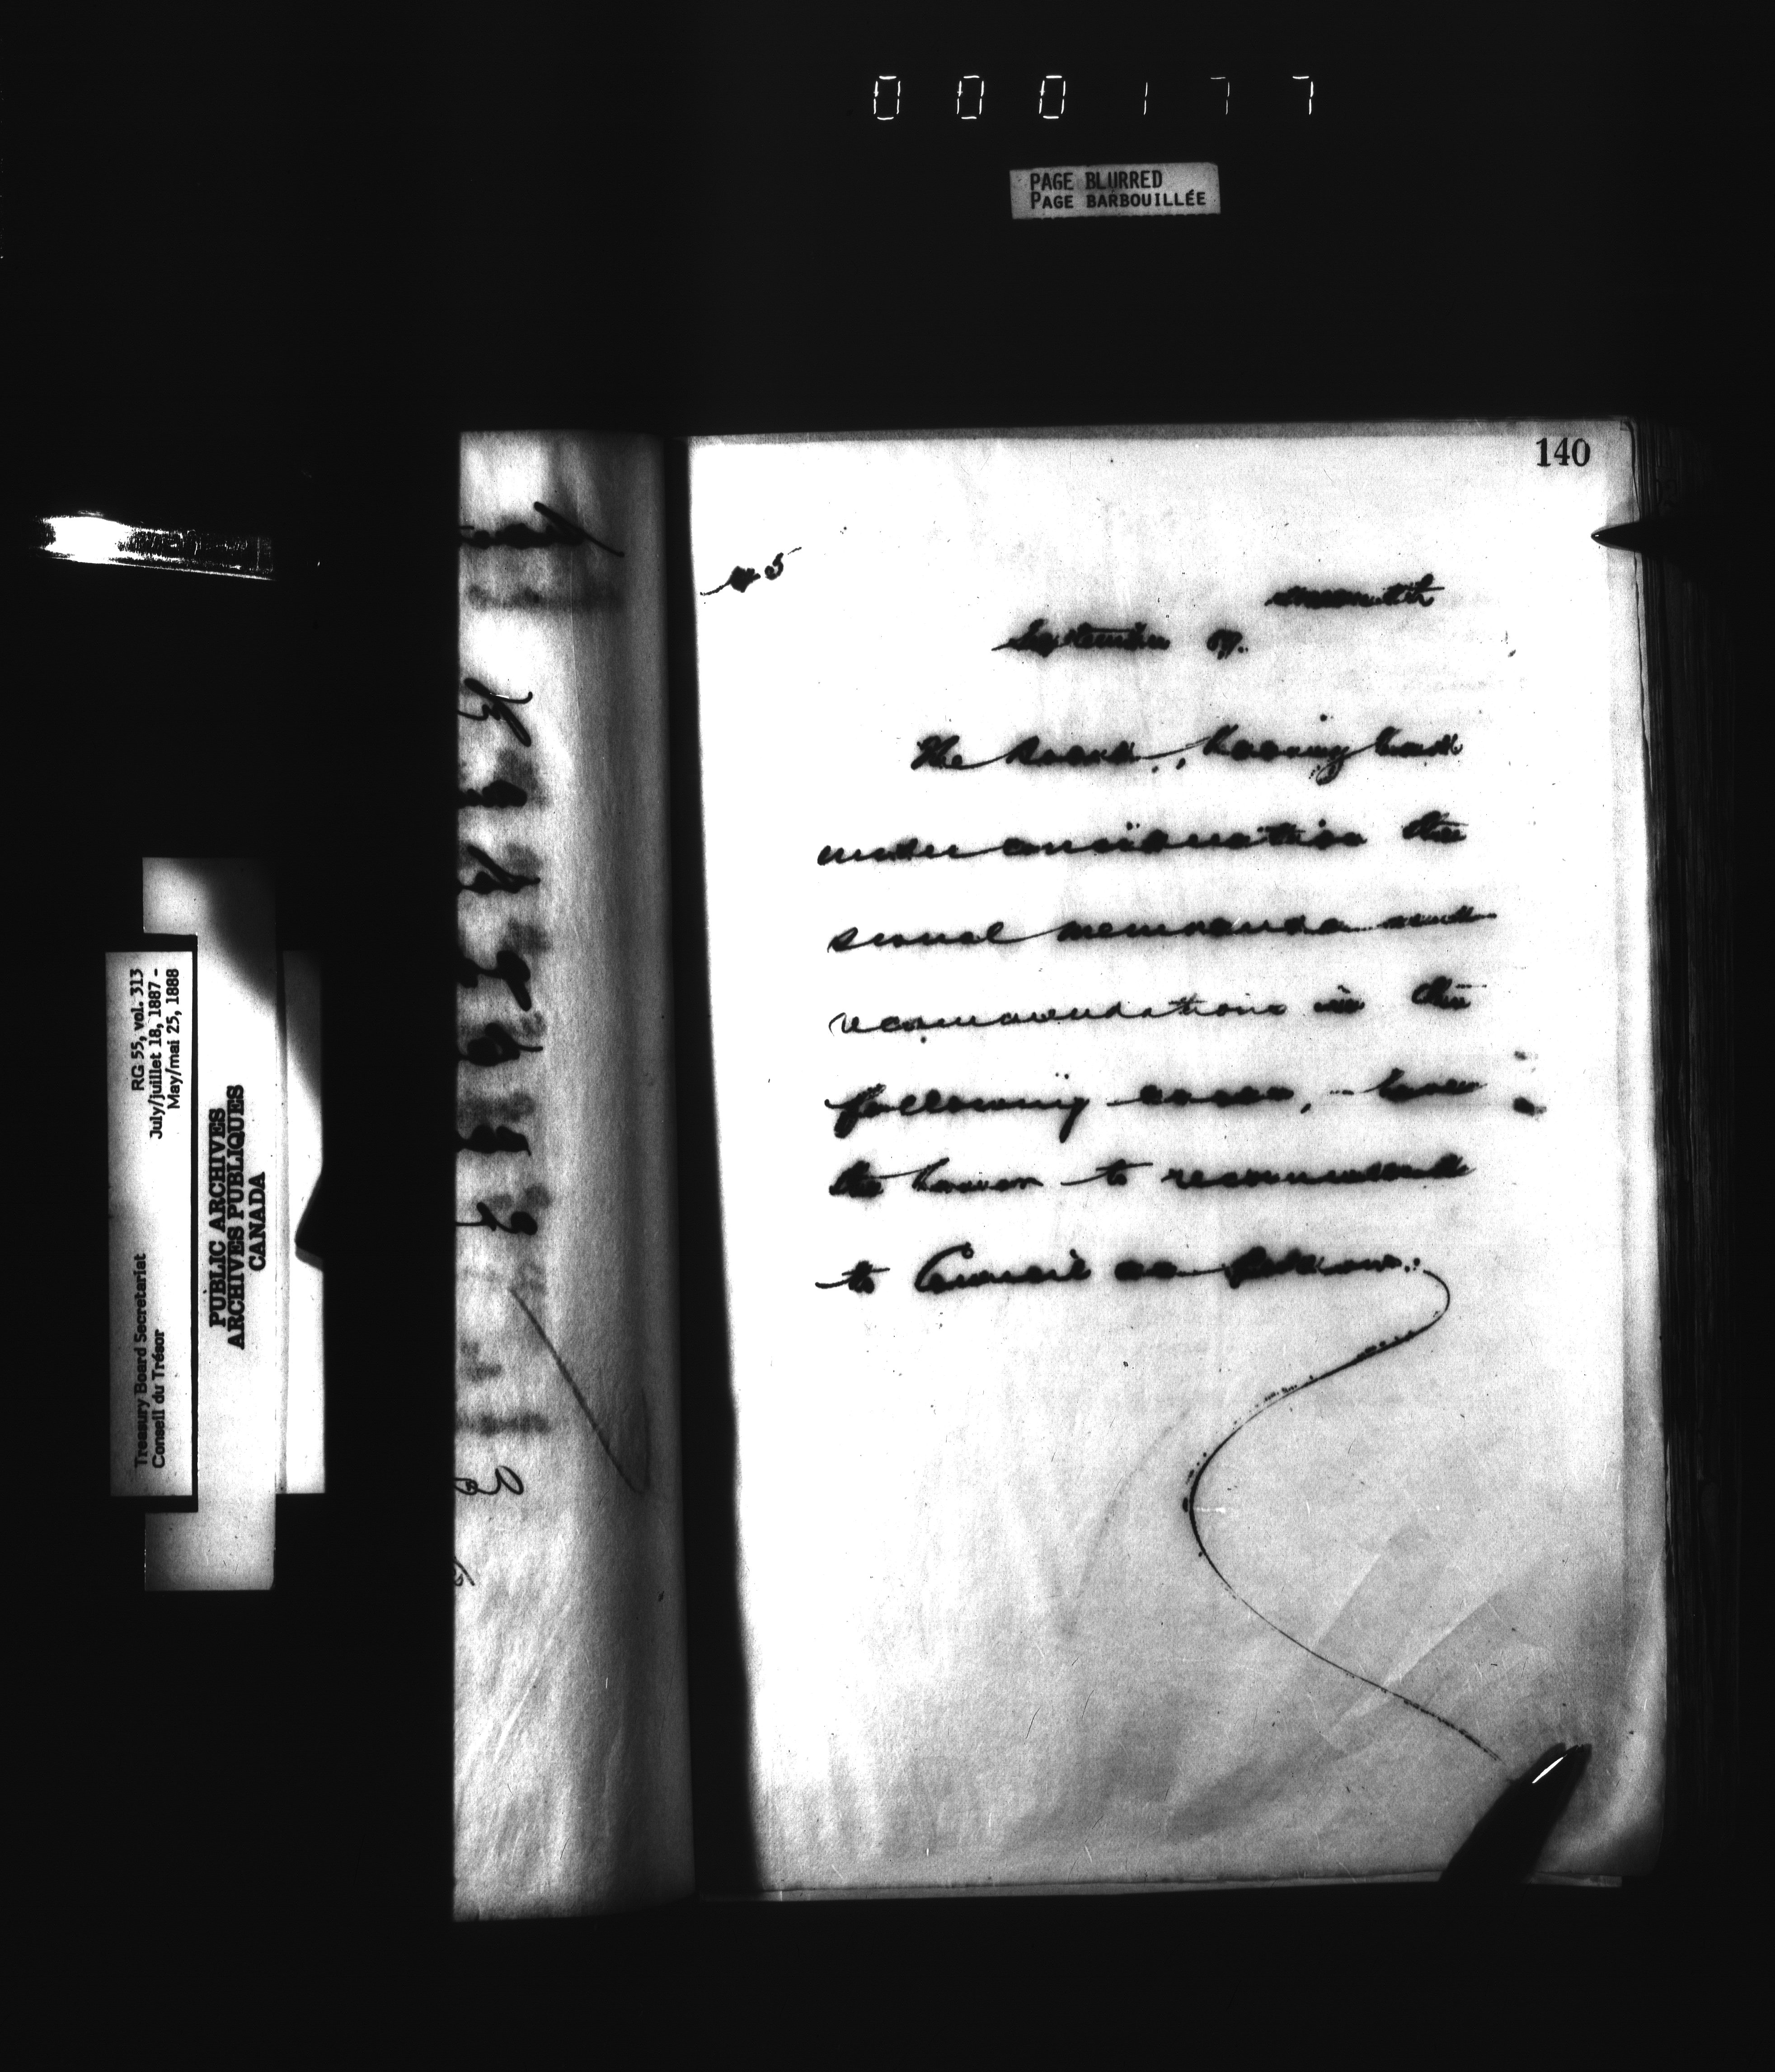 000177
PAGE BLURRED
PAGE BARBOUILLÉE
140
September 87.
The Board, having had
under consideration the
several memoranda and
recommendations in the
following cases, have
the honor to recommend
to Council as follows:
RG 55, vol. 313
July/juillet 18, 1887 -
May/mai 25, 1888
Treasury Board Secretariat
Conseil du Trésor
PUBLIC ARCHIVES
ARCHIVES PUBLIQUES
CANADA